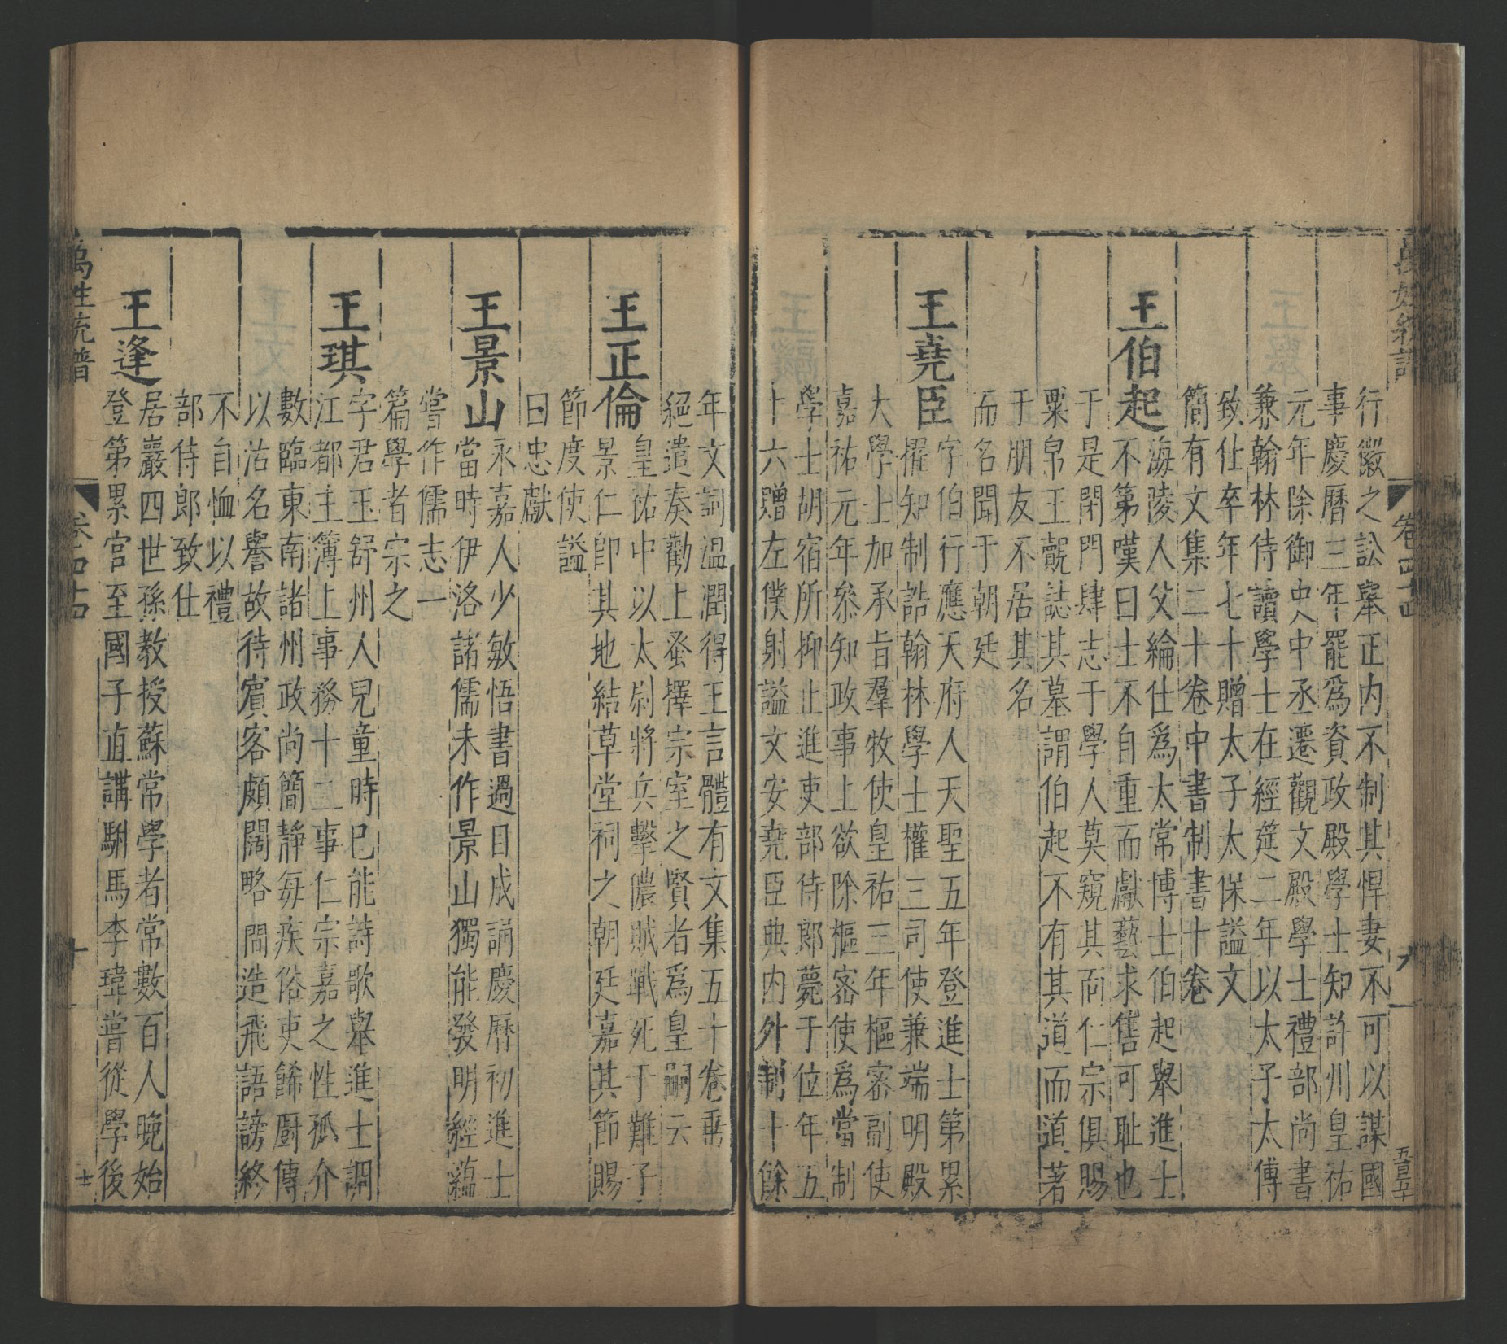 萬姓統譜
卷四十四
九
行徽之訟舉正內不制其悍妻不可以謀國
事慶曆三年罷爲資政殿學士知許州皇祐
元年除御史中丞遷觀文殿學士禮部尚書
兼翰林侍讀學士在經筵二年以太子太傅
致仕卒年七十贈太子太保謚文
簡有文集二十卷中書制書十卷
王伯起
海陵人父綸仕爲太常博士伯起舉進士
不第嘆曰士不自重而獻藝求售可耻也
于是閉門肆志于學人莫窺其面仁宗俱賜
粟帛王覿誌其墓謂伯起不有其道而道著
于朋友不居其名
而名聞于朝廷
王堯臣
字伯行應天府人天聖五年登進士第累
擢知制誥翰林學士權三司使兼端明殿
大學士加承旨羣牧使皇祐三年樞密副使
嘉祐元年叅知政事上欲除樞密使爲當制
學士胡宿所抑止進吏部侍郎薨于位年五
十六贈左僕射謚文安堯臣典內外制十餘
年文詞溫潤得王言體有文集五十卷
絕遺奏勸上蚤擇宗室之賢者爲皇嗣云
王正倫
皇祐中以太尉將兵擊儂賊戰死于難子
景仁卽其地結草堂祠之朝廷嘉其節賜
節度使謚
曰忠獻
王景山
永嘉人少敏悟書過目成誦慶曆初進士
當時伊洛諸儒未作景山獨能發明經蘊
嘗作儒志一
篇學者宗之
王琪
字君玉舒州人兒童時已能詩歌舉進士調
江都主簿上事務十二事仁宗嘉之性孤介
數臨東南諸州政尚簡靜每疾俗吏餙厨傳
以沽名譽故待賓客頗闊略間造飛語謗終
不自恤以禮
部侍郎致仕
王逢
居巖四世孫教授蘇常學者常數百人晚始
登第累官至國子直講駙馬李瑋嘗從學後
萬姓統譜
十